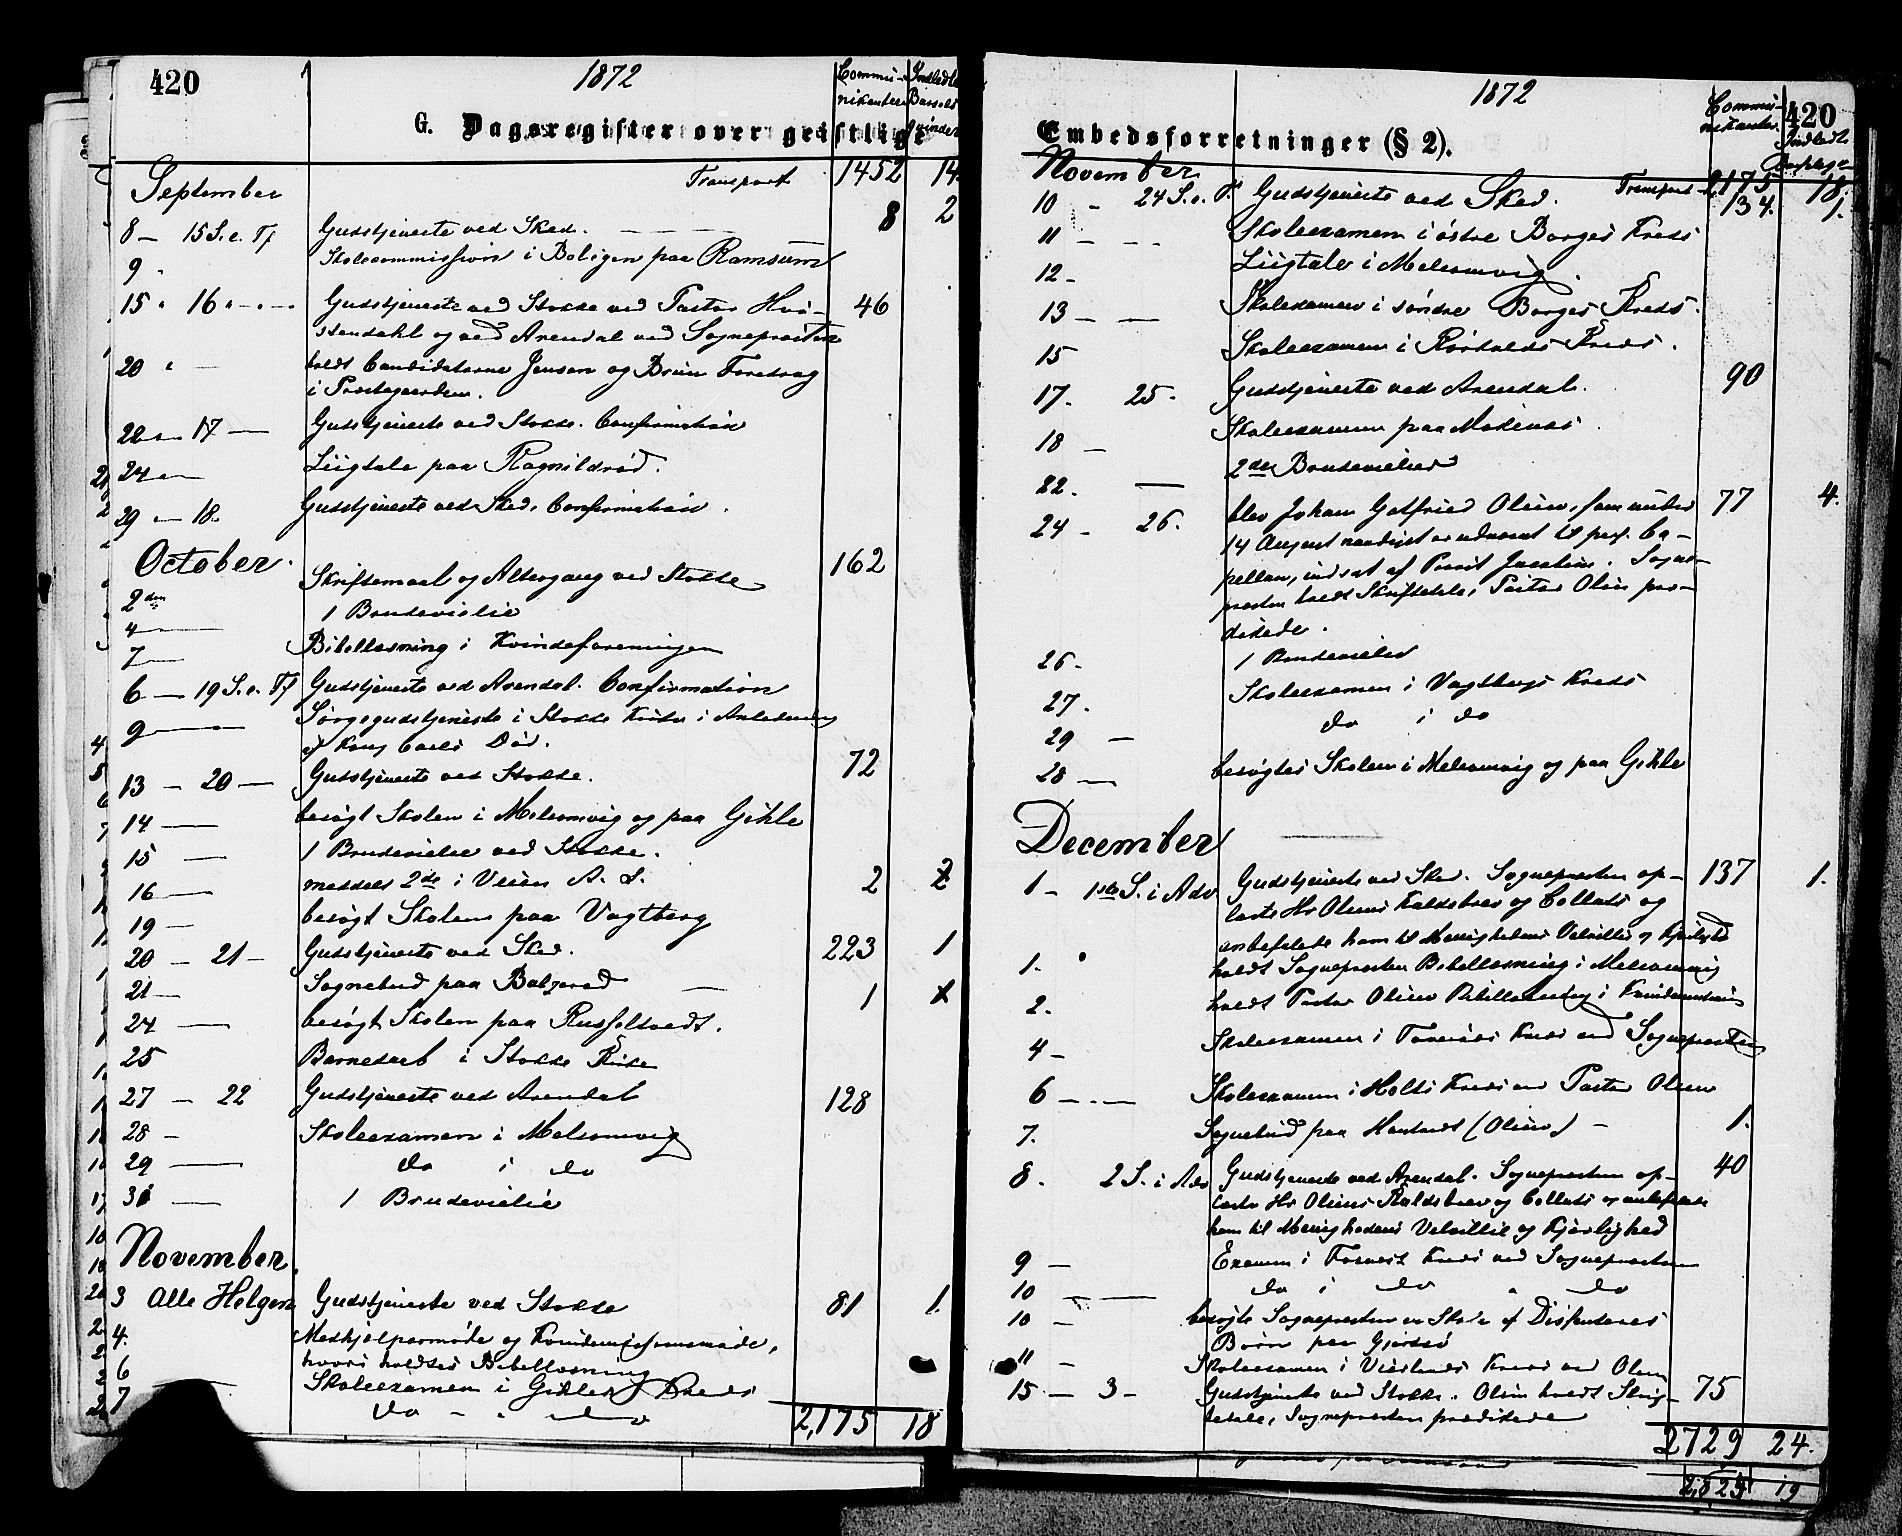 420
1872
Commu-
nikanter
Indledte
Barsels
qvinder
G. Dagsregister over geistlige
September
Transport 1452 14
8 — 15 S. e. Tf Gudstjeneste ved Sked. 8 2
9 Skolecommission i Boligen paa Ramsum
15 " 16 " Gudstjeneste ved Stokke ved Pastor Hvi-
stendahl og ved Arendal ved Sognepræsten 46
20 " — holdt Candidaterne Jensen og Bruun Foredrag
i Præstegaarden.
22 — 17 — Gudstjeneste ved Stokke. Confirmation
24 — Liigtale paa Ragnildrød.
29 — 18. Gudstjeneste ved Sked. Confirmation.
October.
2den Skriftemaal og Altergang ved Stokke 162
4 — 1 Brudevielse
7 — Bibellæsning i Kvindeforeningen
6 — 19 S. e. Tf Gudstjeneste ved Arendal. Confirmation
9 — Sørgegudstjeneste i Stokke Kirke i Anledning
af Kong Carls Død.
13 — 20 — Gudstjeneste ved Stokke. 72
14 — besøgt Skolen i Melsomvig og paa Gihle
15 — 1 Brudevielse ved Stokke.
16 — meddelt 2de i Veien A. S. 2 2
19 — besøgt Skolen paa Vagtberg
20 — 21 — Gudstjeneste ved Sked. 223 1
21 — Sognebud paa Bolgerød — 1 1
24 — besøgt Skolen paa Russeltvedt.
25 Barnedaab i Stokke Kirke
27 — 22 Gudstjeneste ved Arendal 128
28 — Skoleexamen i Melsomvig
29 — do i do
31 — 1 Brudevielse
November.
3 Alle Helgen Gudstjeneste ved Stokke 81 1.
4. Medhjælpermøde og
hvori holdtes Bibellæsning
6 Skoleexamen i Gihles Kreds
7 do — " do
2,175 18
1872
Commu-
nikanter.
420
Indledte
Embedsforretninger (§ 2).
November
Transport 2175 18.
10 — 24 S. e. Tf. Gudstjeneste ved Sked. 134. 1.
11 — — Skoleexamen i østre Borges Kreds
12 — Liigtale i Melsomvig.
13 — — Skoleexamen i søndre Borges Kreds.
15 Skoleexamen i Kreds.
17. 25. Gudstjeneste ved Arendal. 90
18 — Skoleexamen paa
22. — 2de Brudevielser
24 — 26. blev Johan Gotfried Olsen, som under 77 4.
14 August naadigst er udnævnt til pers. Ca-
pellan, indsat af Provst Sogne-
præsten holdt Skriftetale, Pastor Olsen præ-
dikede.
26. 1 Brudevielse
27. Skoleexamen i Vagtbergs Kreds
29 — do i do
28 — besøgtes Skolen i Melsomvig og paa Gihle
December
1 — 1ste S. i Adv Gudstjeneste ved Sked. Sognepræsten op- 137 1.
læste Hr Olsens Kaldsbrev og Collats og
anbefalede ham til Menighedens Velvillie og Kjerlighed
1. holdt Sognepræsten Bibellæsning i Melsomvig
2. holdt Pastor Olsen Bibellæsning i
4 — Skoleexamen i Kreds ved Sognepræsten
6 — — Skoleexamen i Holts Kreds ved Pastor Olsen
7. Sognebud paa (Olsen) — 1.
8. 2 S. i Adv Gudstjeneste ved Arendal. Sognepræsten op- 40
læste Hr Olsens Kaldsbrev og Collats og anbefalede
ham til Menighedens Velvillie og Kjerlighed
9 — Examen i Kreds ved Sognepræsten
10 — — do i do " do
10 — besøgte Sognepræsten en Skole af Dissenteres
Børn paa
11 — Skoleexamen i Kreds ved Olsen
15 — 3 — Gudstjeneste ved Stokke. Olsen holdt Skrif- 75
tetale, Sognepræsten prædikede
2729 24.
2,825 19